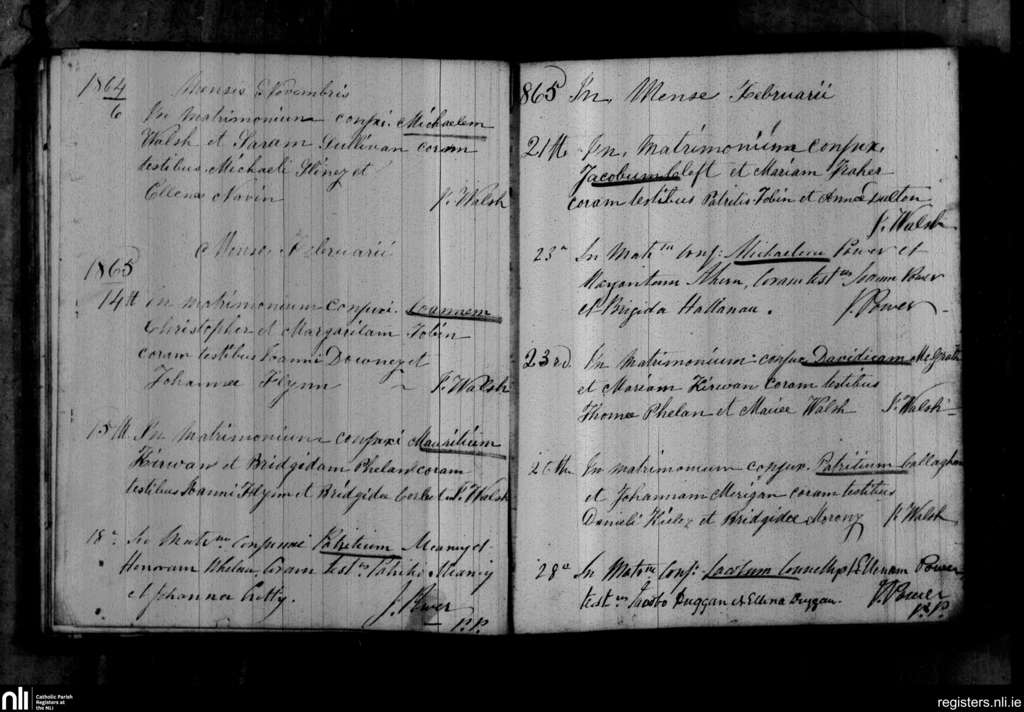 1864 Mensis Novembris
6 In Matrimonium conjuxi. Michaelem
Walsh et Saram Sullivan coram
testibus Michaeli Séney et
Ellena Navin J. Walsh
Mense Februarii
1865
14th In matrimonium conjuxi. Joannem
Christopher et Margaritam Tobin
coram testibus Joanni Downey et
Johanna Flynn J. Walsh
15th In Matrimonium conjuxi Mauritium
Kirwan et Bridgidam Phelan coram
testibus Joanni Flynn et Bridgida J. Walsh
18a In Matrm Conjunxi Patritium Meany et
Honoram Phelan, Coram testus Patritio Meany
et Johanna Crotty. J. Power
P.P.
865 In Mense Februarii
21th In Matrimonium conjux.
Jacobum et Mariam
coram testibus Patritio Tobin et Anna
J. Walsh
23a In Matm Conj: Michaelem Power et
Ahern, Coram testus Joanne Power
et Brigida Hallanan. J. Power
23rd In Matrimonium conjux Davidicum McGrath
et Mariam Kirwan coram testibus
Thoma Phelan et Maria Walsh J. Walsh
26th In matrimonium conjux. Patritium Callaghan
et Johannam Merigan coram testibus
Danieli Kiely et Bridgida Morony J. Walsh
28a In Matm Conj: et Ellenam Power
testus Jacobo Duggan et Ellena Duggan. J. Power
P.P.
nli
Catholic Parish
Registers at
the NLI
registers.nli.ie